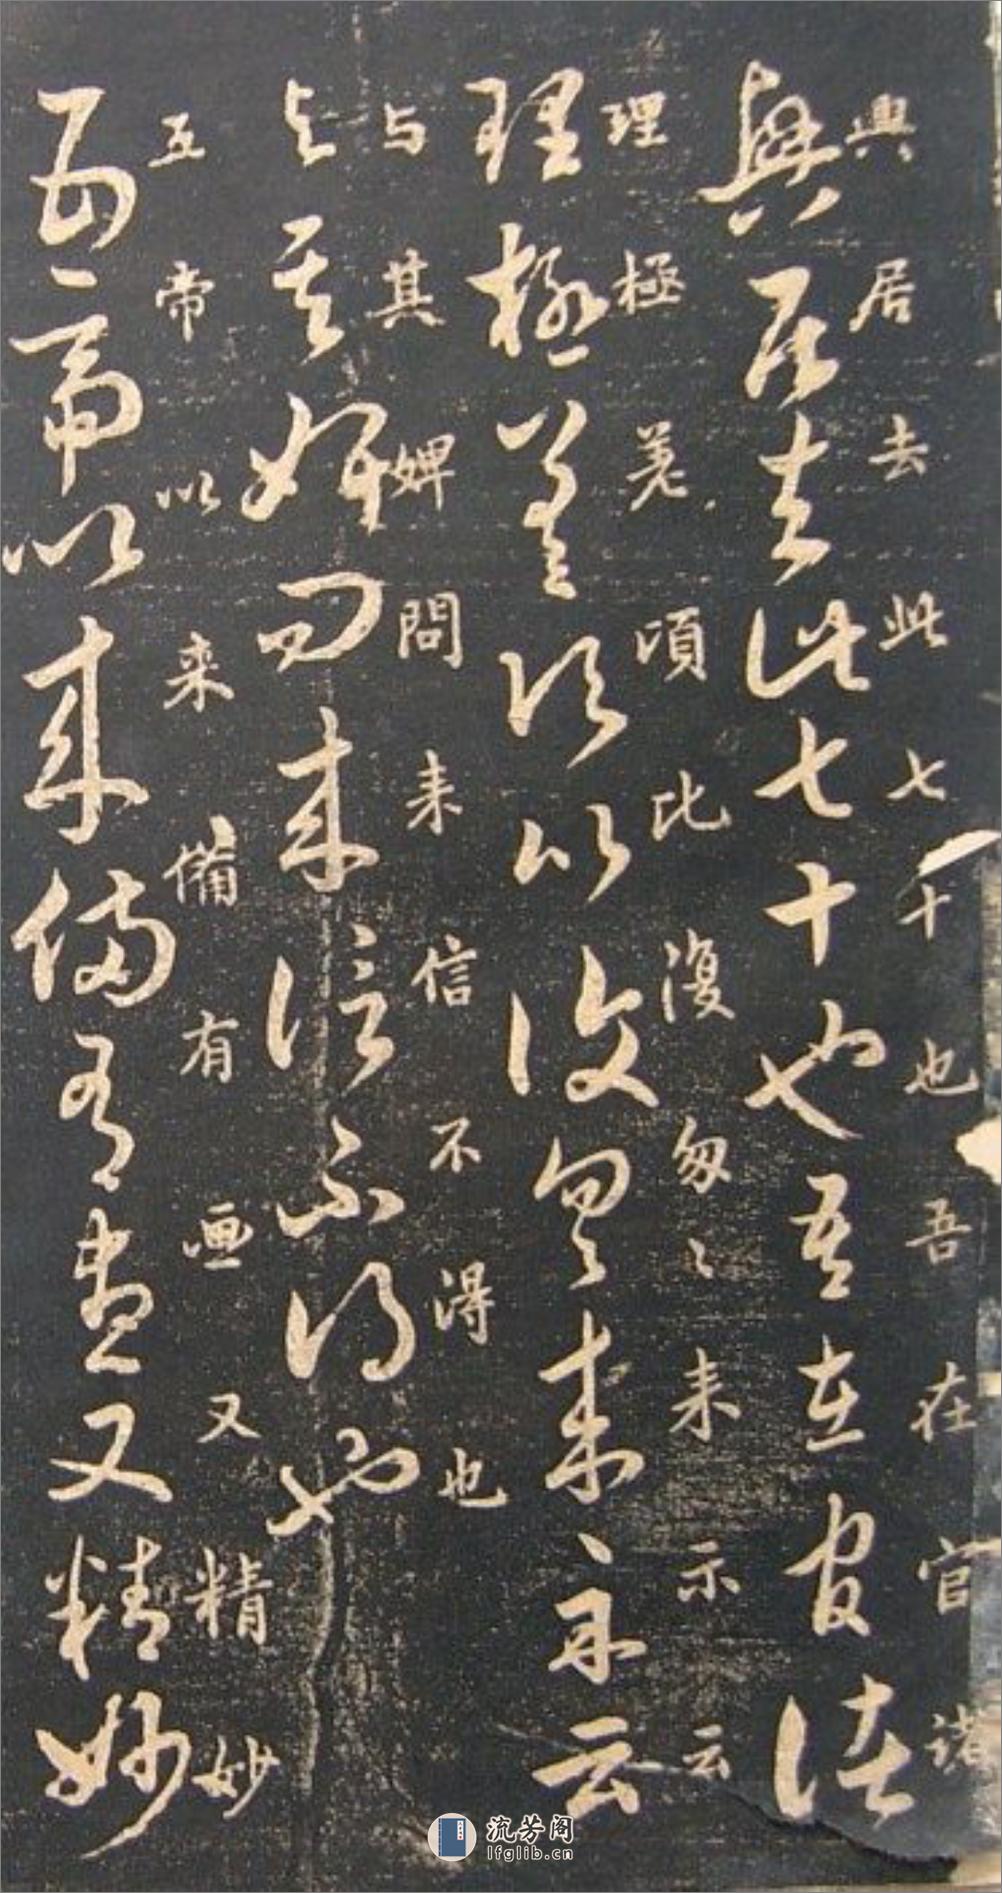 與居去此七十也吾在官諸
與居去此七十也吾在官諸
理極羌頃比復匆〻来示云
理極差頃比復匆来示云
与其婢問来信不得也
与其婢問来信不得也
五帝以来備有画又精妙
五帝以来備有畫又精妙
流芳阁
lfglib.cn